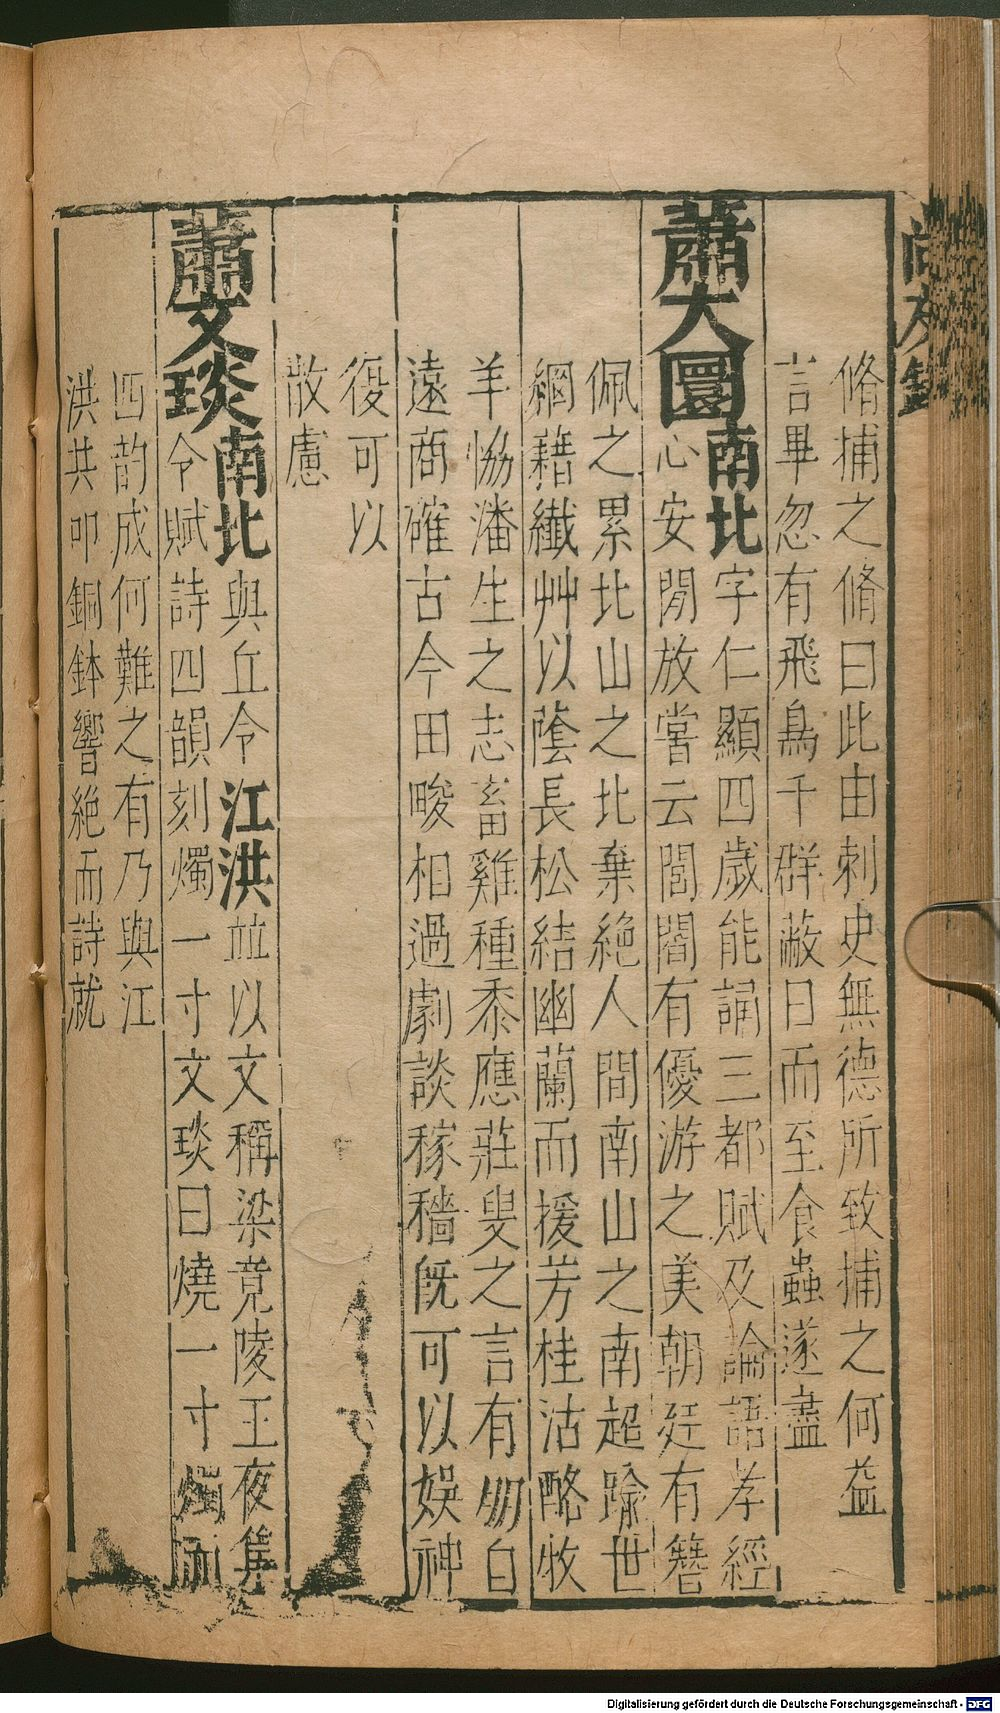 尚友錄
脩捕之脩曰此由刺史無德所致捕之何益
言畢忽有飛鳥千群蔽日而至食蟲遂盡
蕭大圜南北字仁顯四歲能誦三都賦及論語孝經
心安閒放嘗云閭閻有優游之美朝廷有簪
佩之累北山之北棄絕人間南山之南超踰世
網藉纖艸以蔭長松結幽蘭而援芳桂沽酪牧
羊恊潘生之志畜雞種黍應莊叟之言有朋自
遠商確古今田畯相過劇談稼穡旣可以娛神
復可以
散慮
蕭文琰南北與丘令江洪並以文稱梁竟陵王夜集
令賦詩四韻刻燭一寸文琰曰燒一寸燭而
四韵成何難之有乃與江
洪共叩銅鉢響絕而詩就
Digitalisierung gefördert durch die Deutsche Forschungsgemeinschaft - DFG